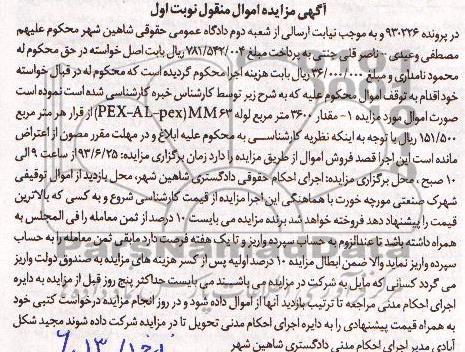 آگهی مزایده اموال منقول نوبت اول
در پرونده ۹۳۰۲۲۶ و به موجب نیابت ارسالی از شعبه دوم دادگاه عمومی حقوقی شاهین شهر محکوم علیهم
مصطفی وعیدی – ناصر قلی جنتی به پرداخت مبلغ ۷۸۱/۵۴۲/۰۰۴ ریال بابت اصل خواسته در حق محکوم له
محمود نامداری و مبلغ ۳۶/۰۰۰/۰۰۰ ریال بابت هزینه اجرا محکوم گردیده است که محکوم له در قبال خواسته
خود اقدام به توقف اموال محکوم علیه که به شرح زیر توسط کارشناس خبره کارشناسی شده است نموده است
صورت اموال مورد مزایده ۱- مقدار ۳۶۰۰ متر مربع لوله MM۶۳ (PEX-AL-pex) از قرار هر متر مربع
۱۵۱/۵۰۰ ریال با توجه به اینکه نظریه کارشناسی به محکوم علیه ابلاغ و در مهلت مقرر مصون از اعتراض
مانده است این اجرا قصد فروش اموال از طریق مزایده را دارد زمان برگزاری مزایده: ۹۳/۶/۲۵ از ساعت ۹ الی
۱۰ صبح ، محل برگزاری مزایده: اجرای احکام حقوقی دادگستری شاهین شهر، محل بازدید از اموال توقیفی
شهرک صنعتی مورچه خورت با هماهنگی این اجرا مزایده از قیمت کارشناسی شروع و به کسی که بالاترین
قیمت را پیشنهاد دهد فروخته خواهد شد برنده مزایده می بایست ۱۰ درصد از ثمن معامله را فی المجلس به
همراه داشته باشد تا عندالزوم به حساب سپرده واریز و تا یک هفته فرصت دارد مابقی ثمن معامله را به حساب
سپرده واریز نماید والا ضمن ابطال مزایده ۱۰ درصد اولیه پس از کسر هزینه های مزایده به صندوق دولت واریز
می گردد کسانی که مایل به شرکت در مزایده می باشند می بایست حداکثر پنج روز قبل از مزایده به دایره
اجرای احکام مدنی مراجعه تا ترتیب بازدید آنها از اموال داده شود و در روز انجام مزایده درخواست کتبی خود
به همراه قیمت پیشنهادی را به دایره اجرای احکام مدنی تحویل تا در مزایده شرکت داده شوند مجید شکل
آبادی مدیر اجرای احکام مدنی دادگستری شاهین شهر